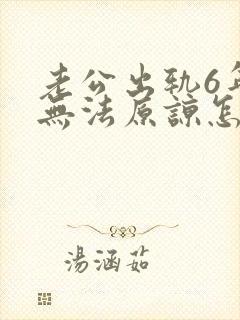 老公出轨6年
無法原諒怎
湯涵茹